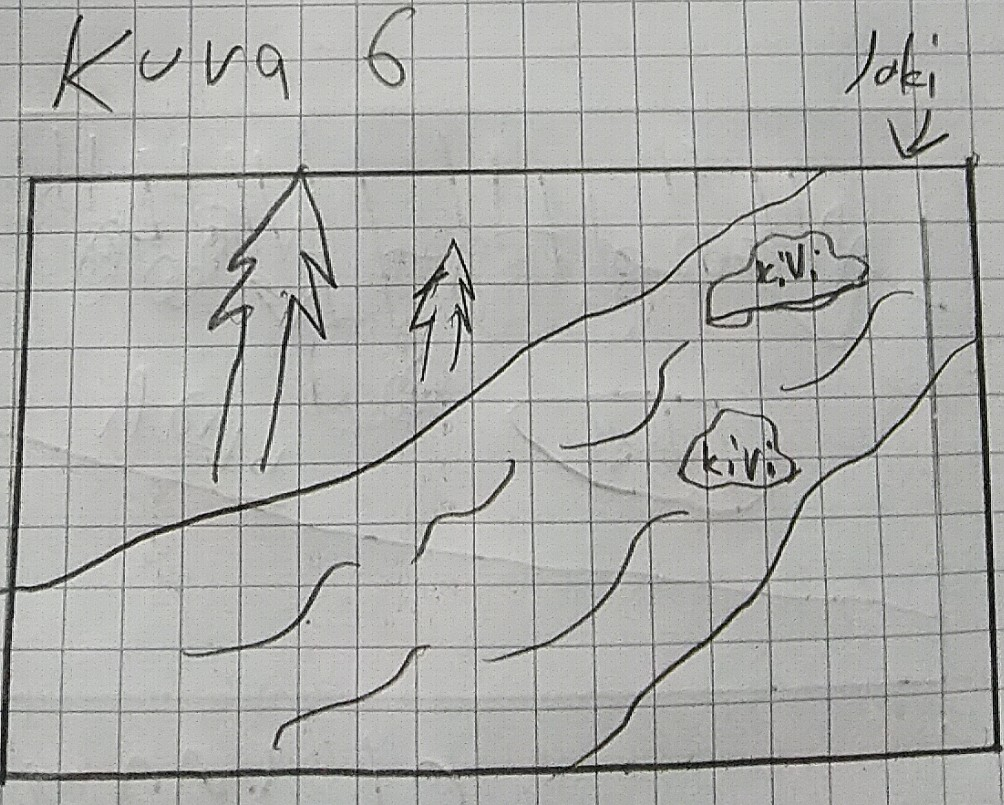 Kuva 6
Joki
kivi
kivi